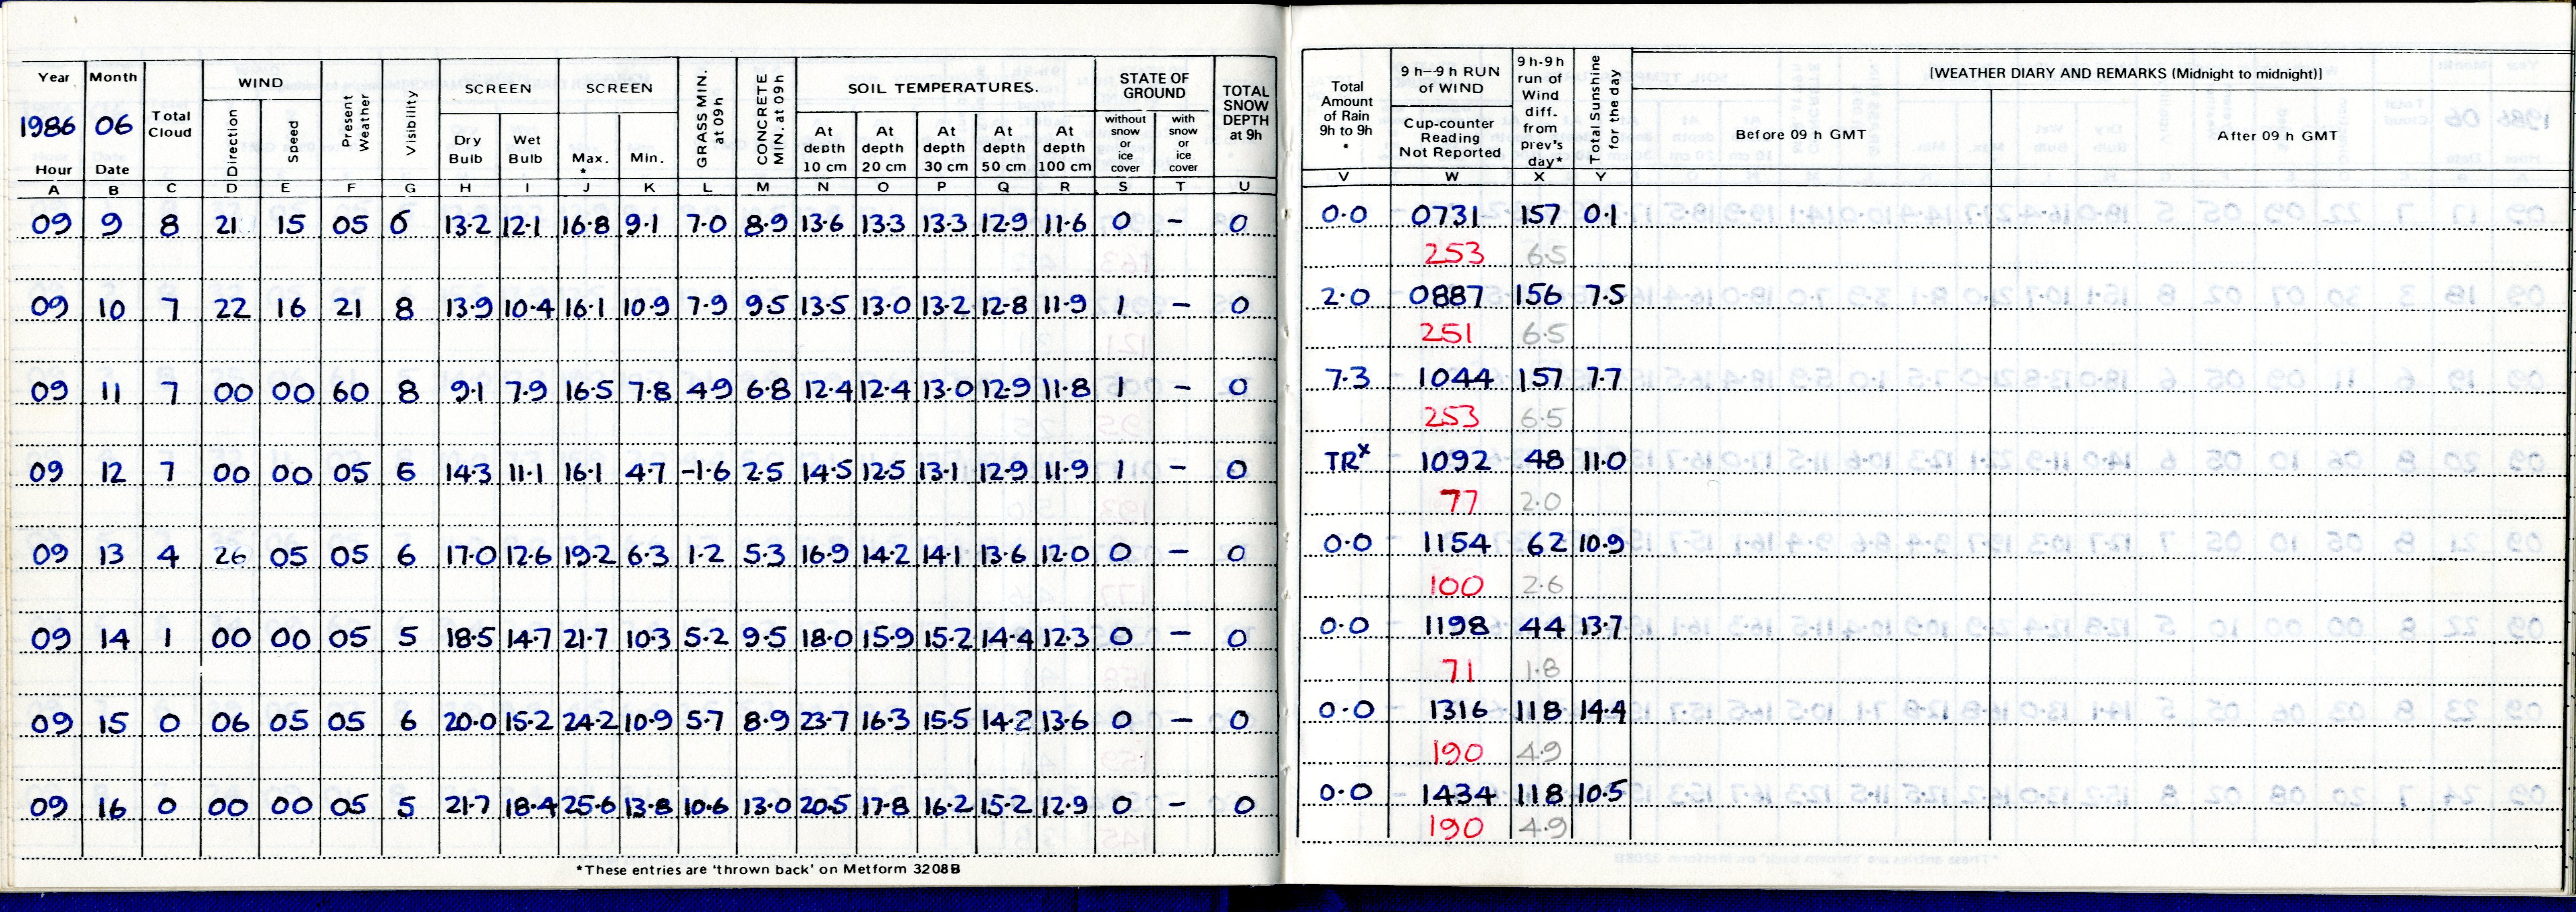 Year Month Total Cloud WIND Direction Speed Present Weather Visibility SCREEN Dry Bulb Wet Bulb SCREEN Max. * Min. GRASS MIN. at 09h CONCRETE MIN. at 09h SOIL TEMPERATURES. At depth 10 cm At depth 20 cm At depth 30 cm At depth 50 cm At depth 100 cm STATE OF GROUND without snow or ice cover with snow or ice cover TOTAL SNOW DEPTH at 9h Total Amount of Rain 9h to 9h * 9 h—9 h RUN of WIND Cup-counter Reading Not Reported 9 h-9 h run of Wind diff. from prev's day* Total Sunshine for the day [WEATHER DIARY AND REMARKS (Midnight to midnight)]
1986 06 Before 09 h GMT After 09 h GMT
Hour Date
A B C D E F G H I J K L M N O P Q R S T U V W X Y
09 9 8 21 15 05 6 13.2 12.1 16.8 9.1 7.0 8.9 13.6 13.3 13.3 12.9 11.6 0 – 0 0.0 0731 157 0.1
253 6.5
09 10 7 22 16 21 8 13.9 10.4 16.1 10.9 7.9 9.5 13.5 13.0 13.2 12.8 11.9 1 – 0 2.0 0887 156 7.5
251 6.5
09 11 7 00 00 60 8 9.1 7.9 16.5 7.8 4.9 6.8 12.4 12.4 13.0 12.9 11.8 1 – 0 7.3 1044 157 7.7
253 6.5
09 12 7 00 00 05 6 14.3 11.1 16.1 4.7 -1.6 2.5 14.5 12.5 13.1 12.9 11.9 1 – 0 TRx 1092 48 11.0
77 2.0
09 13 4 26 05 05 6 17.0 12.6 19.2 6.3 1.2 5.3 16.9 14.2 14.1 13.6 12.0 0 – 0 0.0 1154 62 10.9
100 2.6
09 14 1 00 00 05 5 18.5 14.7 21.7 10.3 5.2 9.5 18.0 15.9 15.2 14.4 12.3 0 – 0 0.0 1198 44 13.7
71 1.8
09 15 0 06 05 05 6 20.0 15.2 24.2 10.9 5.7 8.9 23.7 16.3 15.5 14.2 13.6 0 – 0 0.0 1316 118 14.4
190 4.9
09 16 0 00 00 05 5 21.7 18.4 25.6 13.8 10.6 13.0 20.5 17.8 16.2 15.2 12.9 0 – 0 0.0 1434 118 10.5
190 4.9
*These entries are 'thrown back' on Metform 3208B